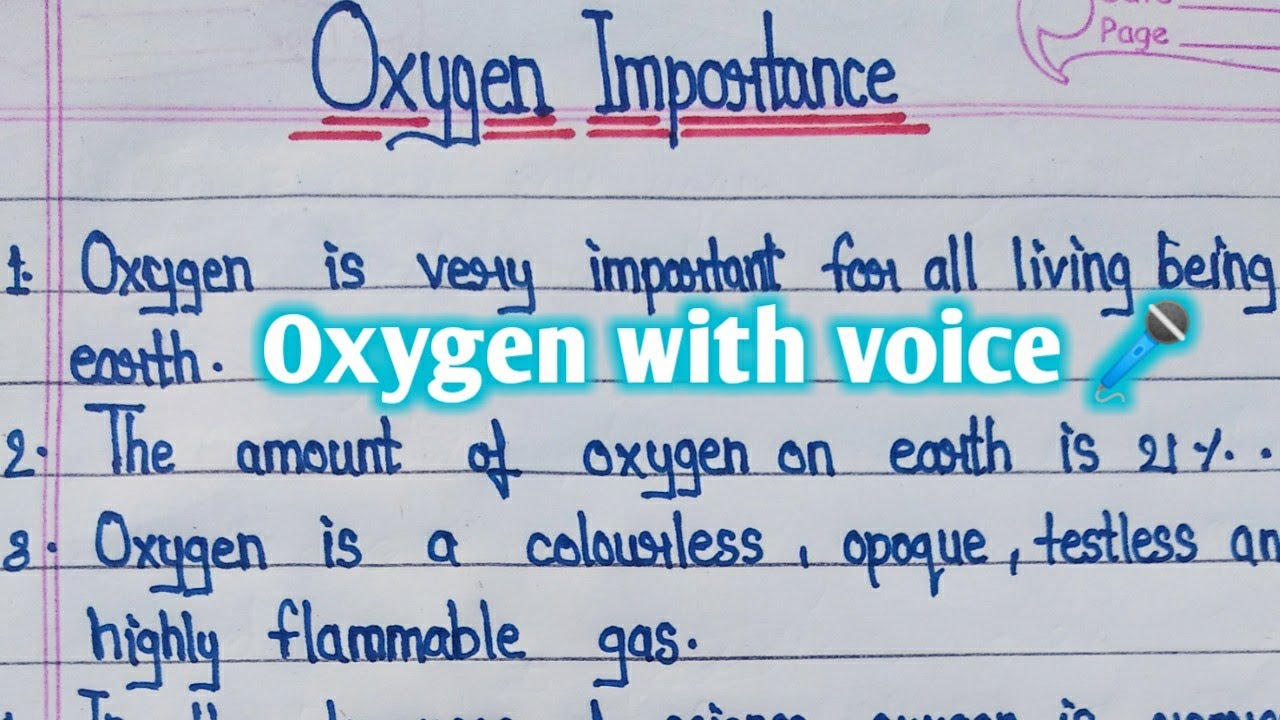 Page
Oxygen Importance
1. Oxygen is very important for all living being
earth.
Oxygen with voice
2. The amount of oxygen on earth is 21%.
3. Oxygen is a colourless, opoque, testless an
highly flammable gas.
science oxygen is